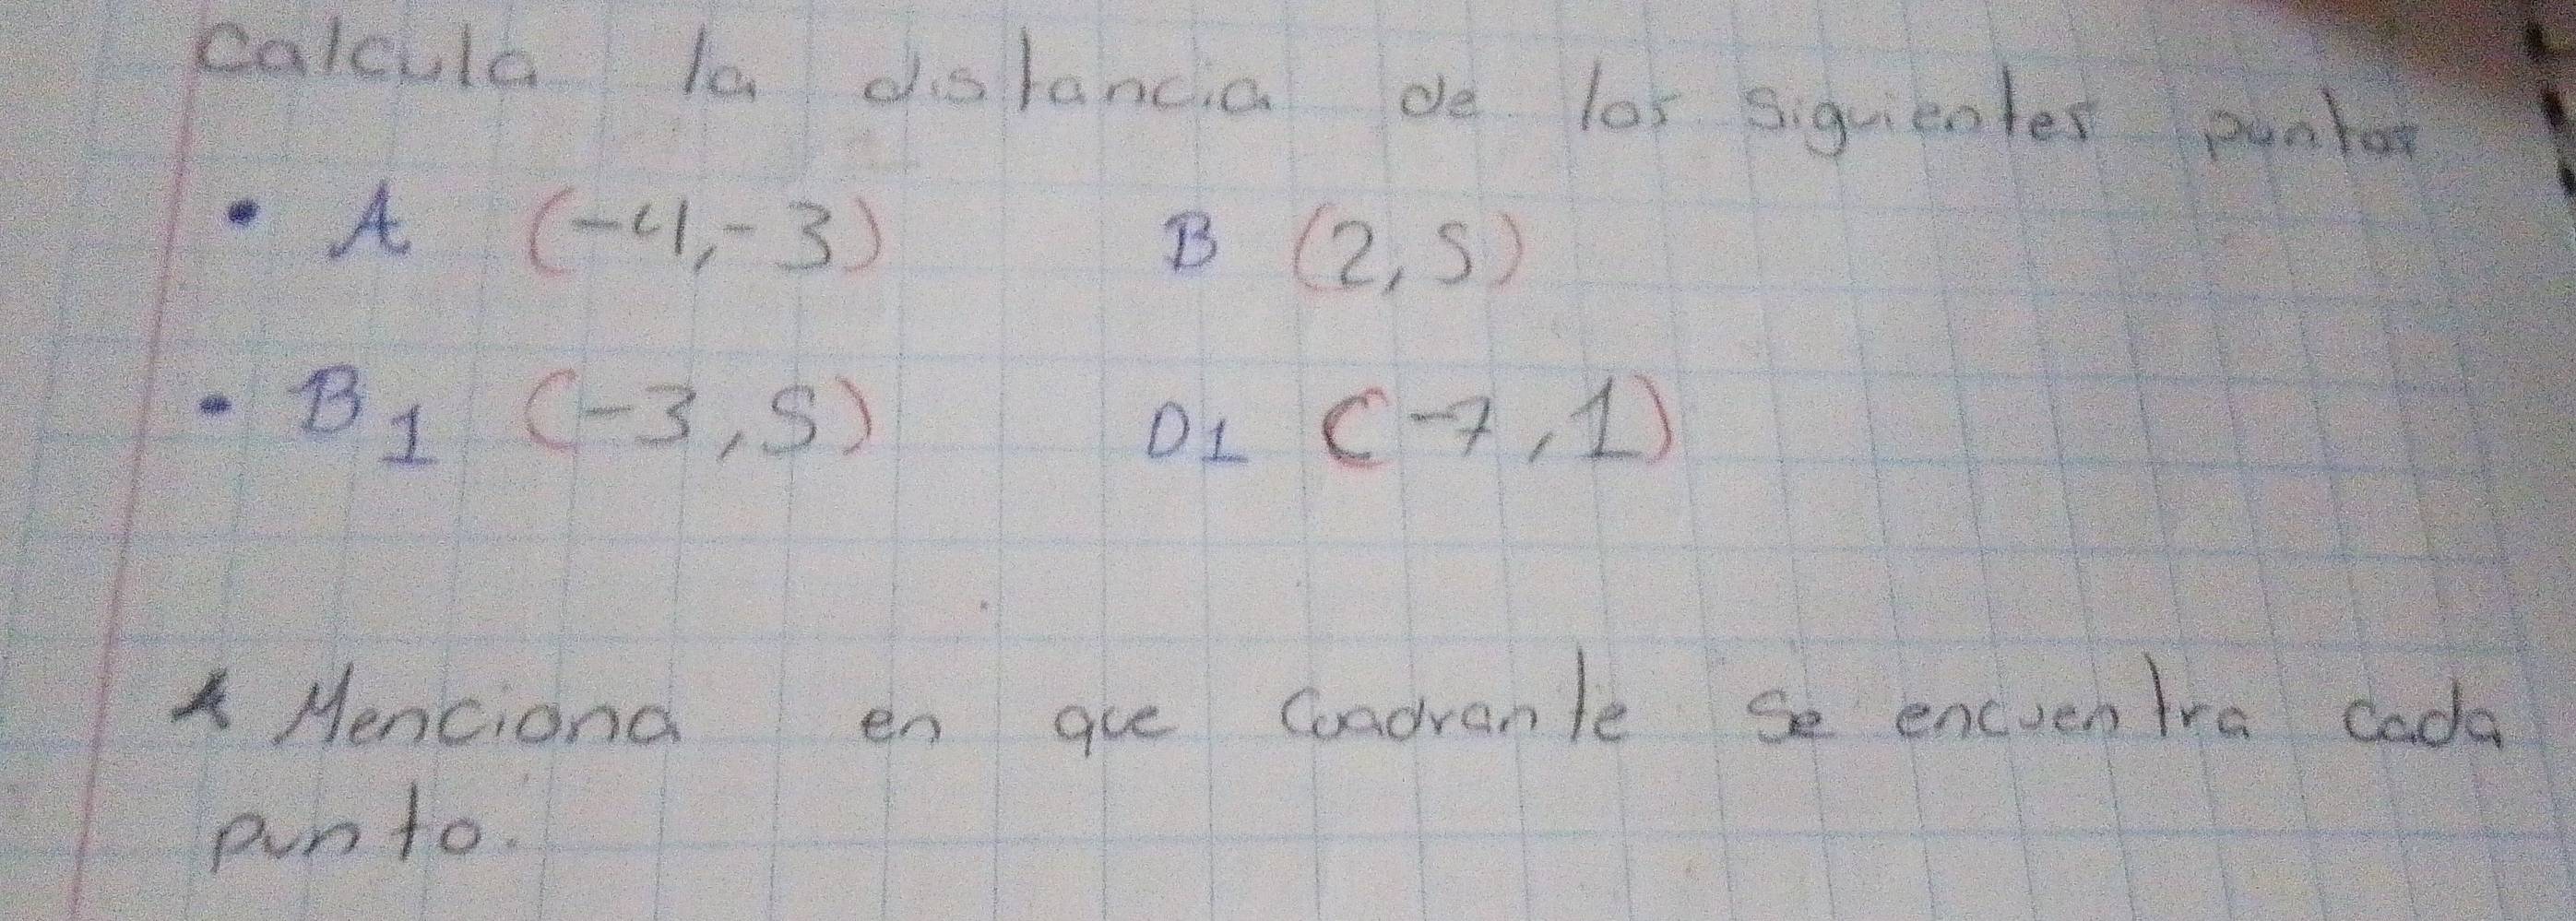 Calcula la distancia de los siguientes puntos
• A (-4,-3) B (2,5)
• B1 (-3,5) D1 (-7,1)
Menciona en que cuadrante se encuentra cada
punto.